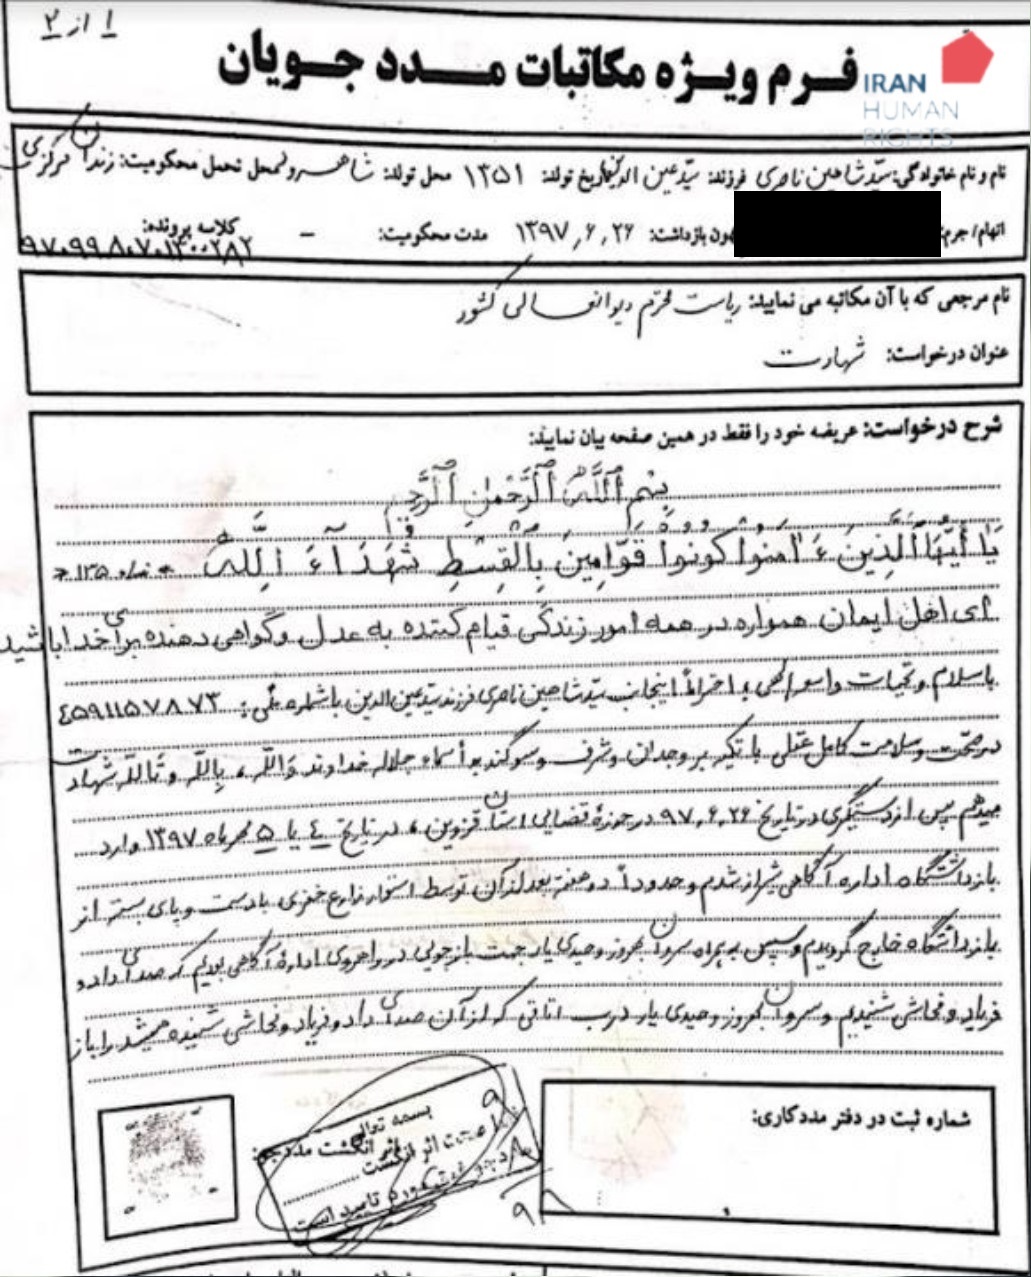 ۱ از ۲
فرم ویژه مکاتبات مدد جویان
IRAN
HUMAN
RIGHTS
نام و نام خانوادگی: سیّد شاهین ناصری فرزند: سیّد عین الدین تاریخ تولد: ۱۳۵۱ محل تولد: شاهرود محل تحمل محکومیت: زندان مرکزی
اتهام/ جرم: بازداشت: ۱۳۹۷,۶,۲۶ مدت محکومیت: – کلاسه پرونده:
۹۷۰۹۹۸۰۷۰۱۴۰۰۲۸۲
نام مرجعی که با آن مکاتبه می نمایید: ریاست محترم دیوانعالی کشور
عنوان درخواست: شهادت
شرح درخواست: عریضه خود را فقط در همین صفحه بیان نمایید:
بِسْمِ ٱللَّهِ ٱلرَّحْمٰنِ ٱلرَّحِیمِ
یَا أَیُّهَا ٱلَّذِینَ ءَامَنُوا کُونُوا قَوَّامِینَ بِالْقِسْطِ شُهَدَآءَ لِلَّهِ نساء ۱۳۵
ای اهل ایمان همواره در همه امور زندگی قیام کننده به عدل و گواهی دهنده برای خدا باشید
باسلام و تحیات و احتراماً اینجانب سیّد شاهین ناصری فرزند سیّد عین الدین با شماره ملّی: ۴۵۹۱۱۵۷۸۷۳
در صحّت و سلامت کامل عقلی با تکیه بر وجدان و شرف و سوگند به أسماء جلاله خداوند وَاللّه، بِاللّه و تَاللّه شهادت
میدهم پس از دستگیری در تاریخ ۹۷,۶,۲۶ در حوزهٔ قضایی استان قزوین، در تاریخ ۴ یا ۵ مهر ماه ۱۳۹۷ وارد
بازداشتگاه اداره آگاهی شیراز شدم و حدوداً دو هفته بعد از آن توسط استوار زارع جفری با دست و پای بسته از
بازداشتگاه خارج گردیدم و سپس به همراه سروان بهروز وحیدی یار جهت بازجویی در راهروی ادارهٔ آگاهی بودیم که صدای داد و
فریاد و فحاشی شنیدیم و سروان بهروز وحیدی یار درب اتاقی که از آن صدای داد و فریاد و فحاشی شنیده میشد را باز
شماره ثبت در دفتر مددکاری:
اثر انگشت مددجو:
بسمه تعالی
صحت اثر انگشت
مددجو مورد تایید است